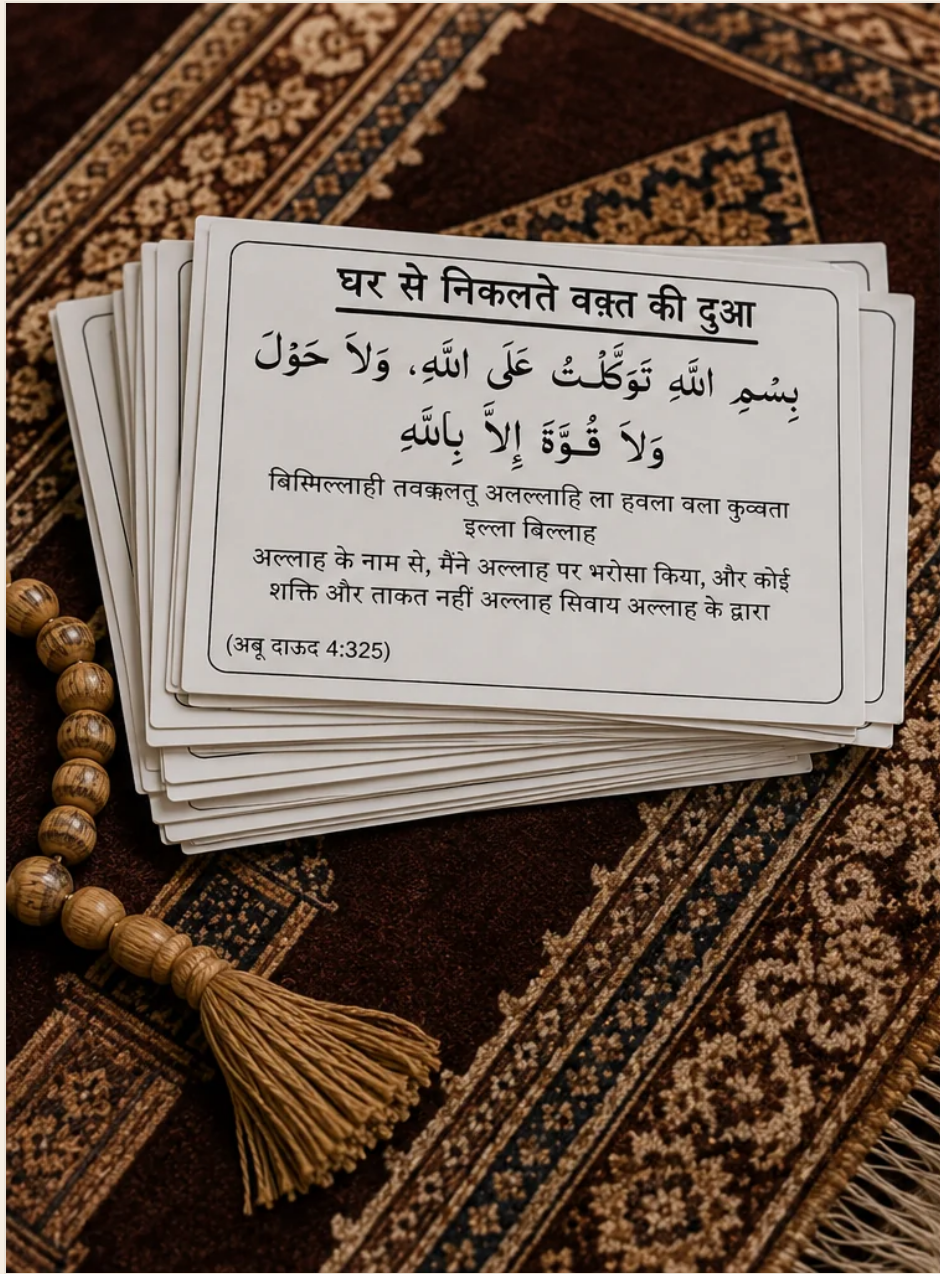 घर से निकलते वक़्त की दुआ
بِسْمِ اللَّهِ تَوَكَّلْتُ عَلَى اللَّهِ، وَلاَ حَوْلَ
وَلاَ قُوَّةَ إِلاَّ بِاللَّهِ
बिस्मिल्लाही तवक्कलतू अलल्लाहि ला हवला वला कुव्वता
इल्ला बिल्लाह
अल्लाह के नाम से, मैंने अल्लाह पर भरोसा किया, और कोई
शक्ति और ताकत नहीं अल्लाह सिवाय अल्लाह के द्वारा
(अबू दाऊद 4:325)